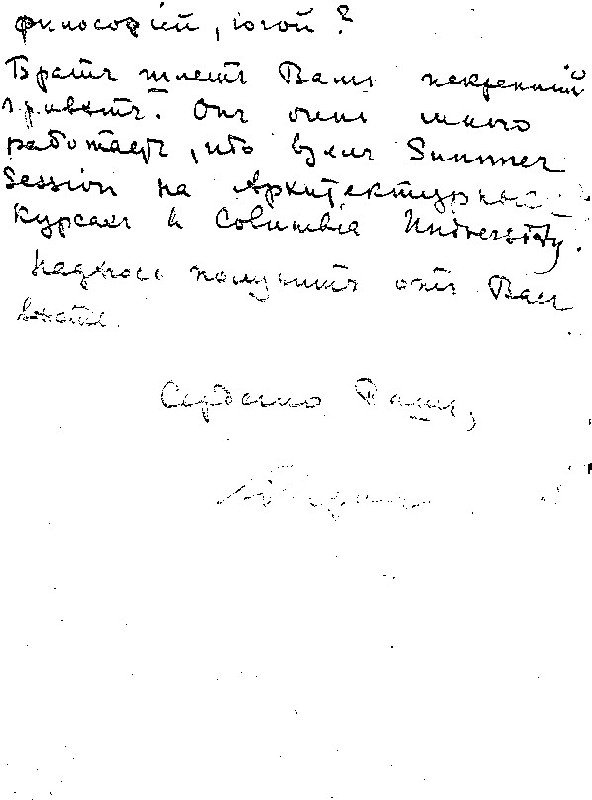 философіей, іогой?
Братъ шлетъ Вамъ искренній
привѣтъ. Онъ очень много
работаетъ, ибо взялъ Summer
Session на Архитектурныхъ
Курсахъ в Columbia University.
Надѣюсь получить отъ Васъ
вѣсти.
Сердечно Вашъ,